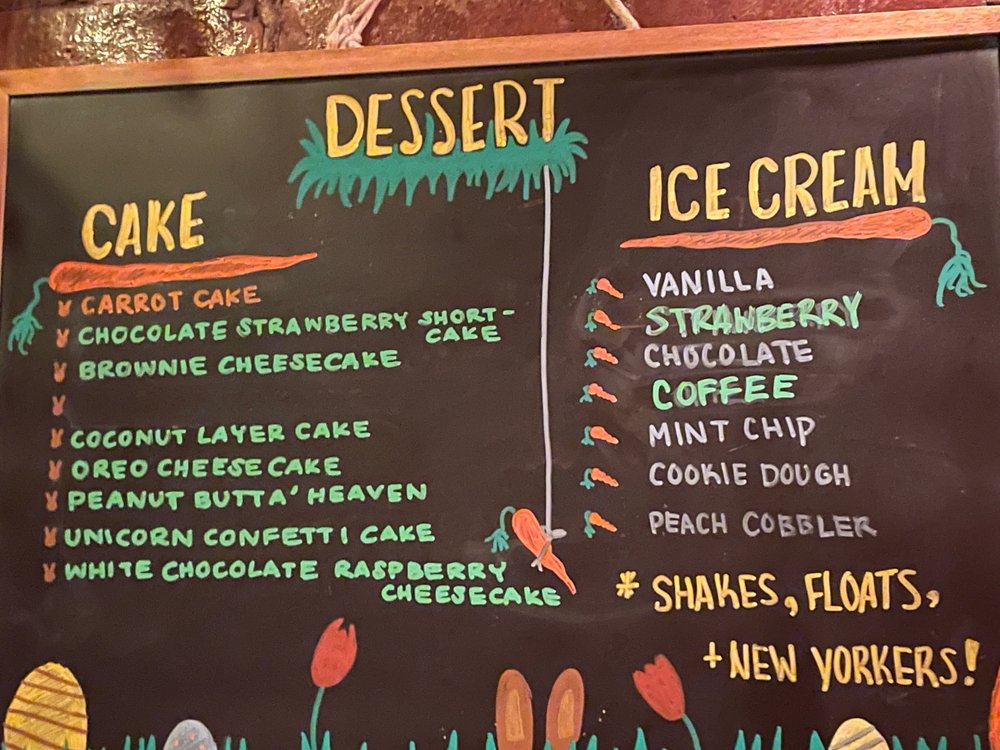 DESSERT
CAKE
CARROT CAKE
CHOCOLATE STRAWBERRY SHORT-
CAKE
BROWNIE CHEESECAKE
COCONUT LAYER CAKE
OREO CHEESECAKE
PEANUT BUTTA' HEAVEN
UNICORN CONFETTI CAKE
WHITE CHOCOLATE RASPBERRY
CHEESECAKE
ICE CREAM
VANILLA
STRAWBERRY
CHOCOLATE
COFFEE
MINT CHIP
COOKIE DOUGH
PEACH COBBLER
* SHAKES, FLOATS,
+ NEW YORKERS!